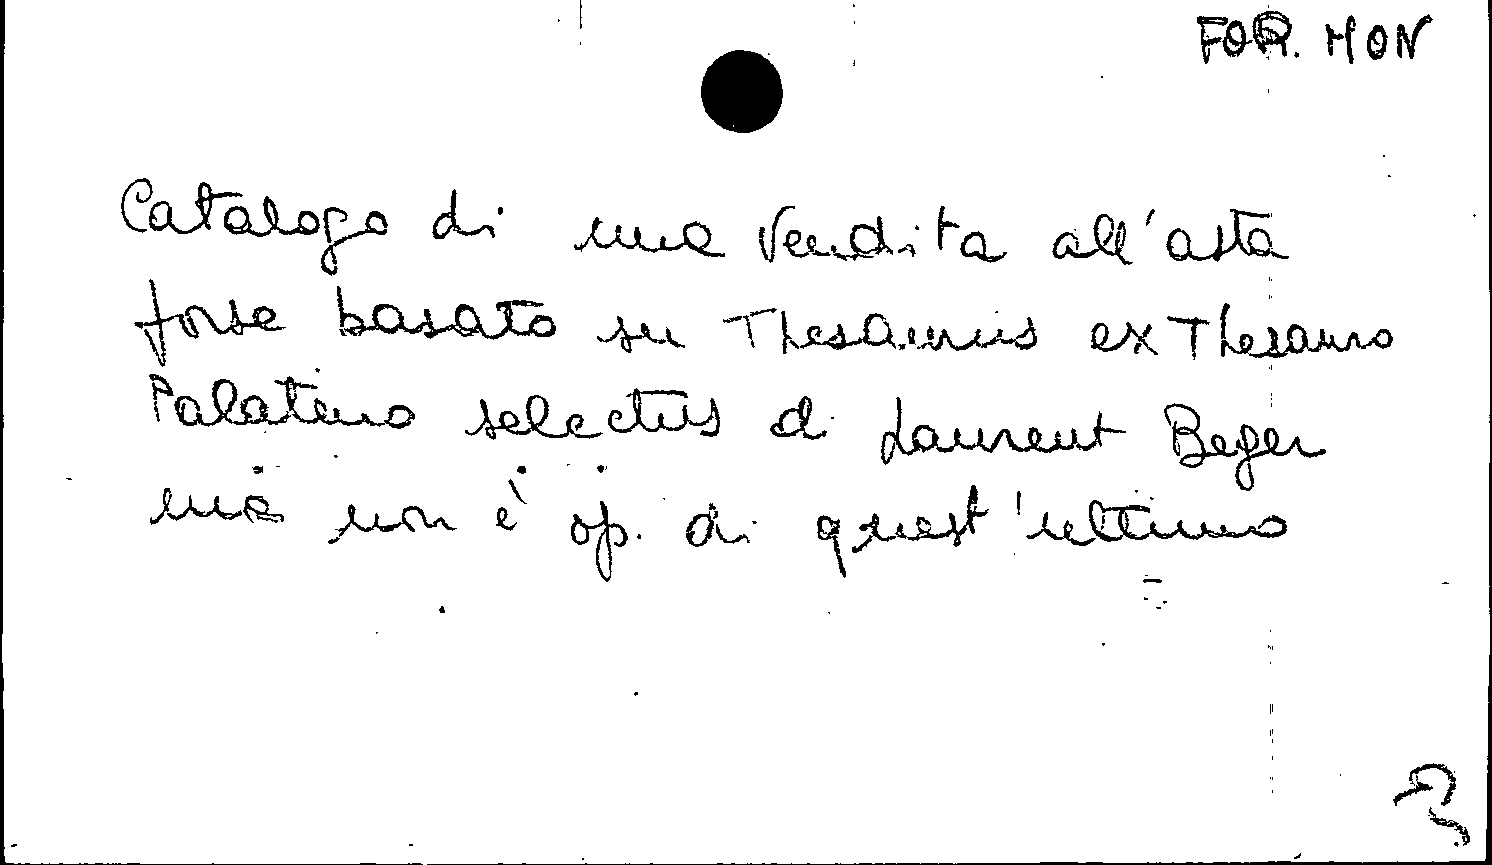 FOR. MON
Catalogo di una vendita all'asta
forse basato su Thesaurus ex Thesauro
Palatino selectus di Laurent Beger
ma non è op. di quest'ultimo